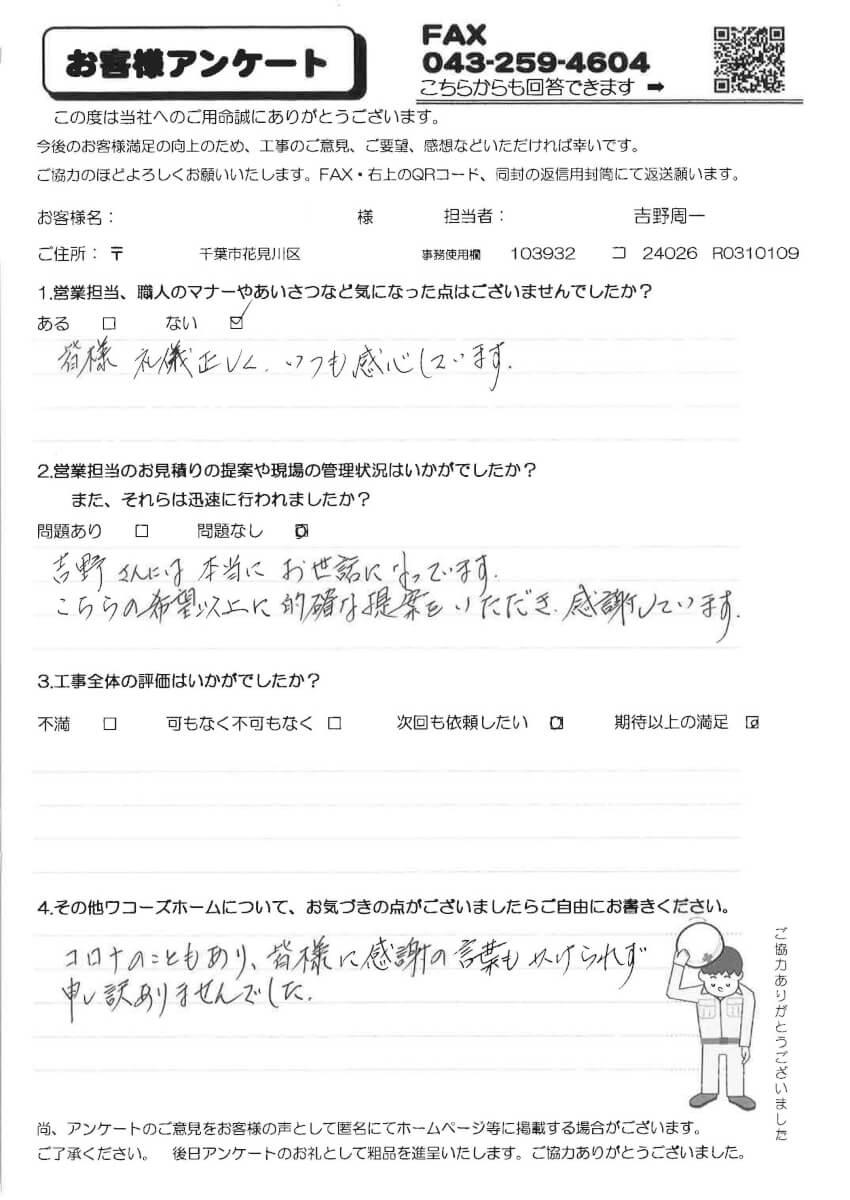 お客様アンケート
FAX
043-259-4604
こちらからも回答できます ➡
この度は当社へのご用命誠にありがとうございます。
今後のお客様満足の向上のため、工事のご意見、ご要望、感想などいただければ幸いです。
ご協力のほどよろしくお願いいたします。FAX・右上のQRコード、同封の返信用封筒にて返送願います。
お客様名： 様 担当者： 吉野周一
ご住所：〒 千葉市花見川区 事務使用欄 103932 コ 24026 R0310109
1.営業担当、職人のマナーやあいさつなど気になった点はございませんでしたか？
ある □ ない ☑
皆様 礼儀正しく、いつも感心しています。
2.営業担当のお見積りの提案や現場の管理状況はいかがでしたか？
また、それらは迅速に行われましたか？
問題あり □ 問題なし ☑
吉野さんには本当にお世話になっています。
こちらの希望以上に的確な提案をいただき、感謝しています。
3.工事全体の評価はいかがでしたか？
不満 □ 可もなく不可もなく □ 次回も依頼したい ☑ 期待以上の満足 ☑
4.その他ワコーズホームについて、お気づきの点がございましたらご自由にお書きください。
コロナのこともあり、皆様に感謝の言葉もかけられず
申し訳ありませんでした。
ご協力ありがとうございました
尚、アンケートのご意見をお客様の声として匿名にてホームページ等に掲載する場合がございます。
ご了承ください。 後日アンケートのお礼として粗品を進呈いたします。ご協力ありがとうございました。